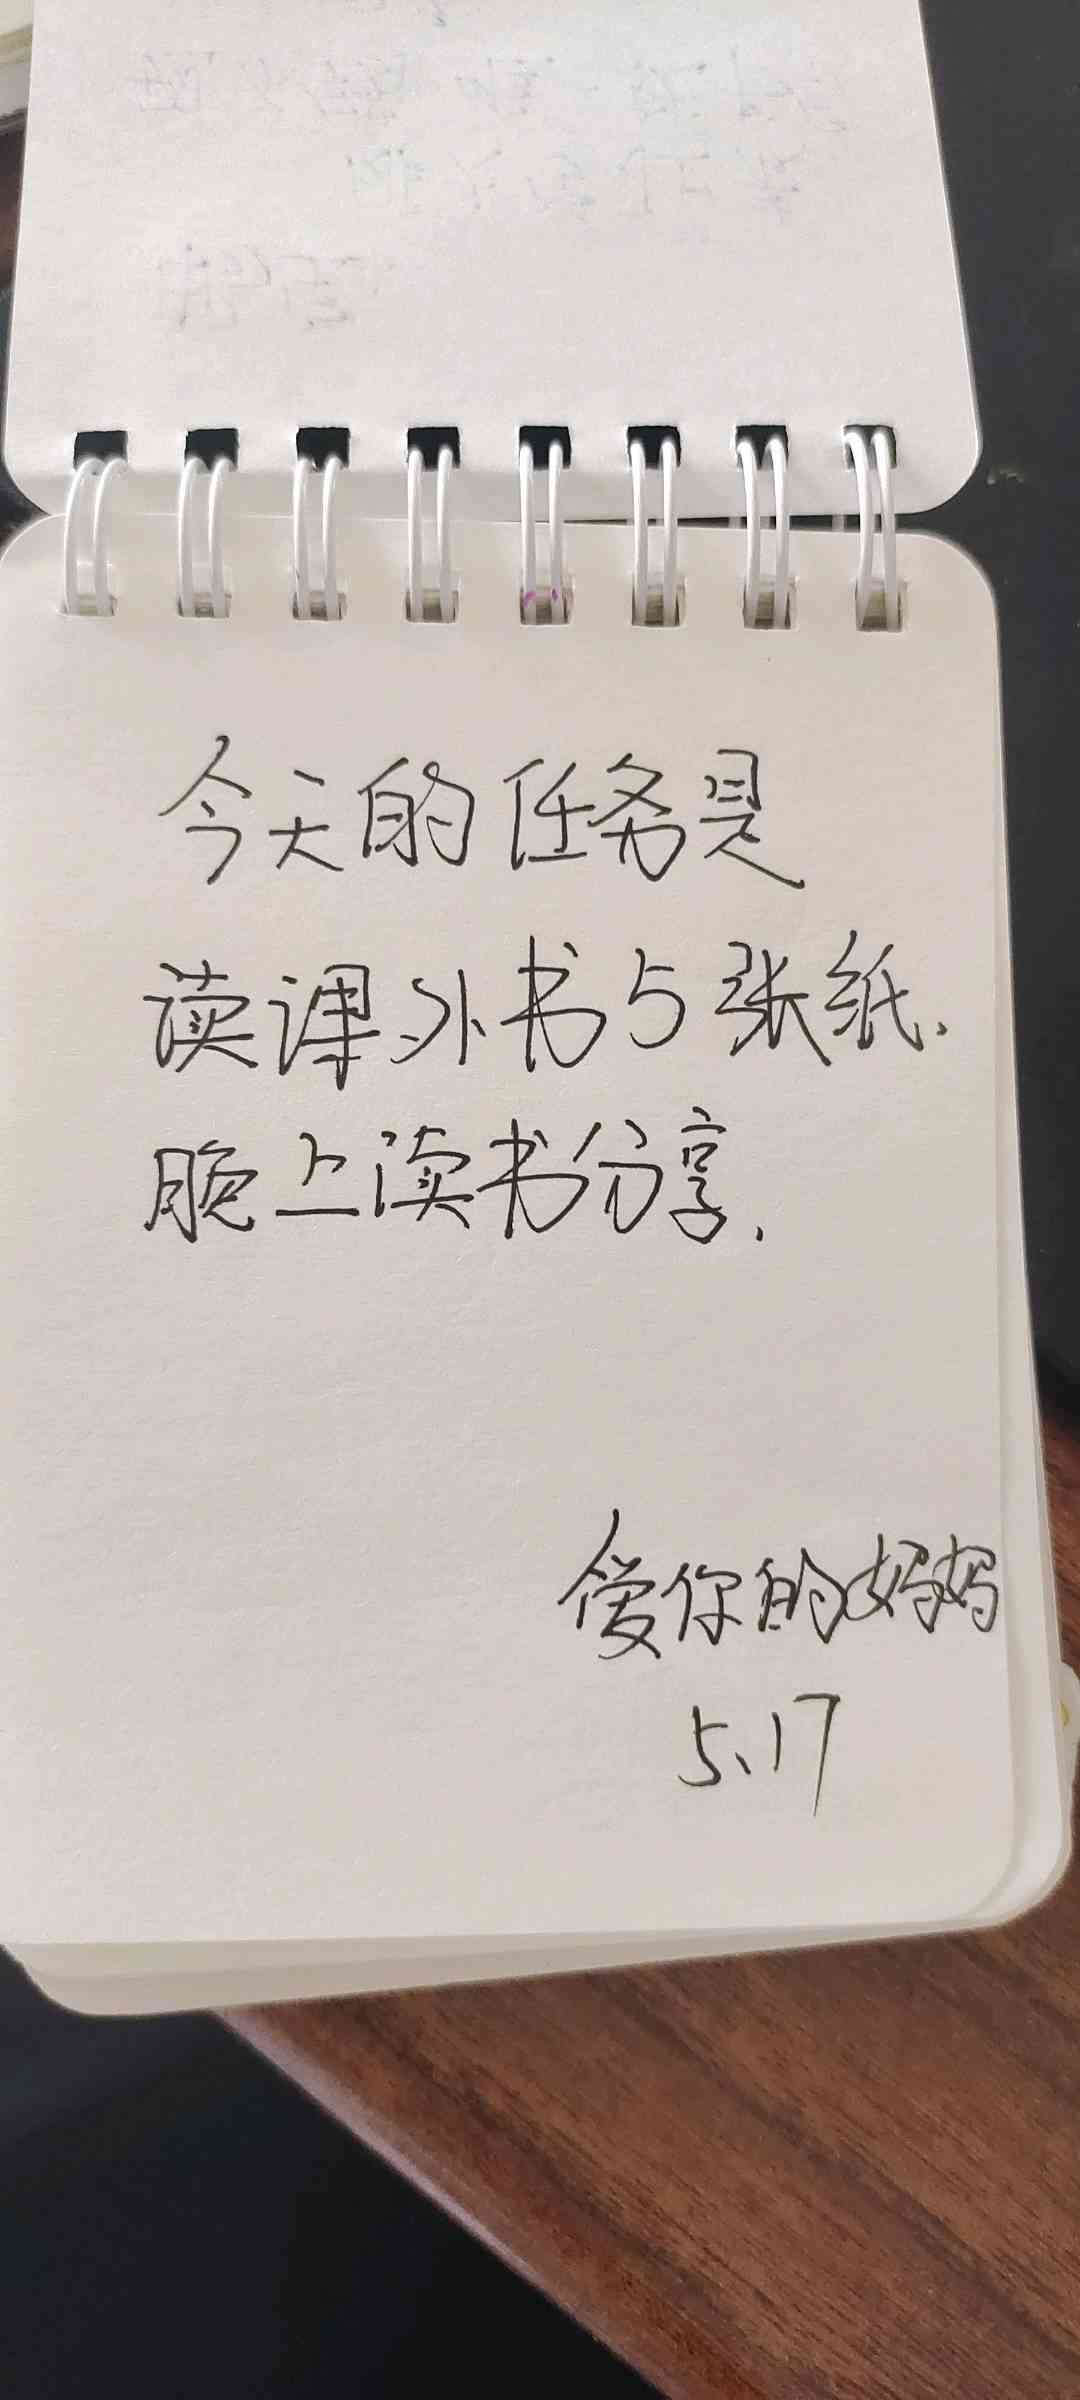 今天的任务是
读课外书5张纸.
晚上读书分享.
爱你的妈妈
5.17